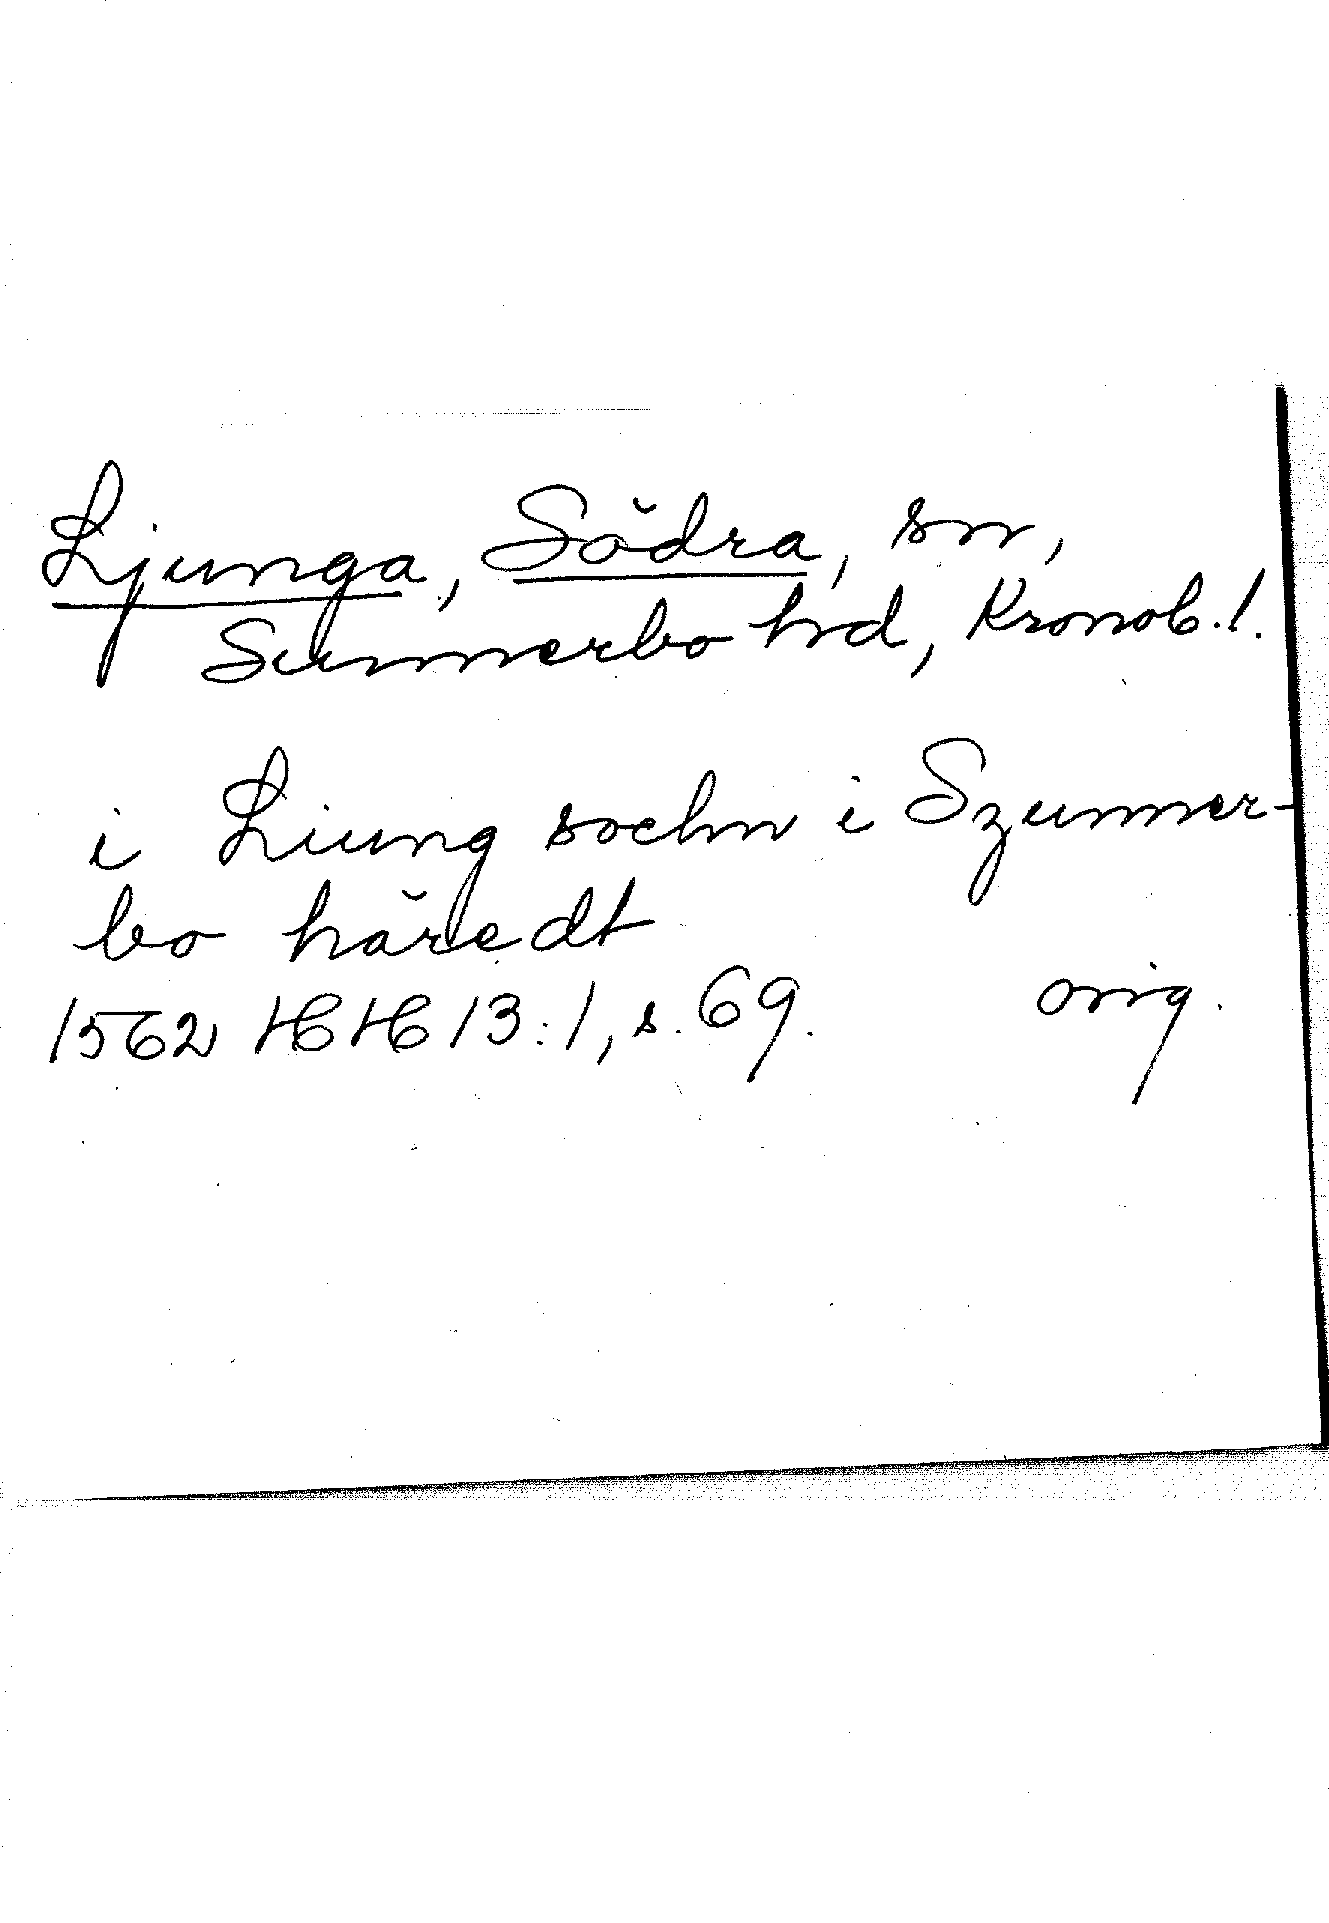 Ljunga, Södra, sn,
Sunnerbo hd, Kronob. l.
i Liung sochn i Szunner-
bo häredt
1562 HH 13:1, s. 69. orig.